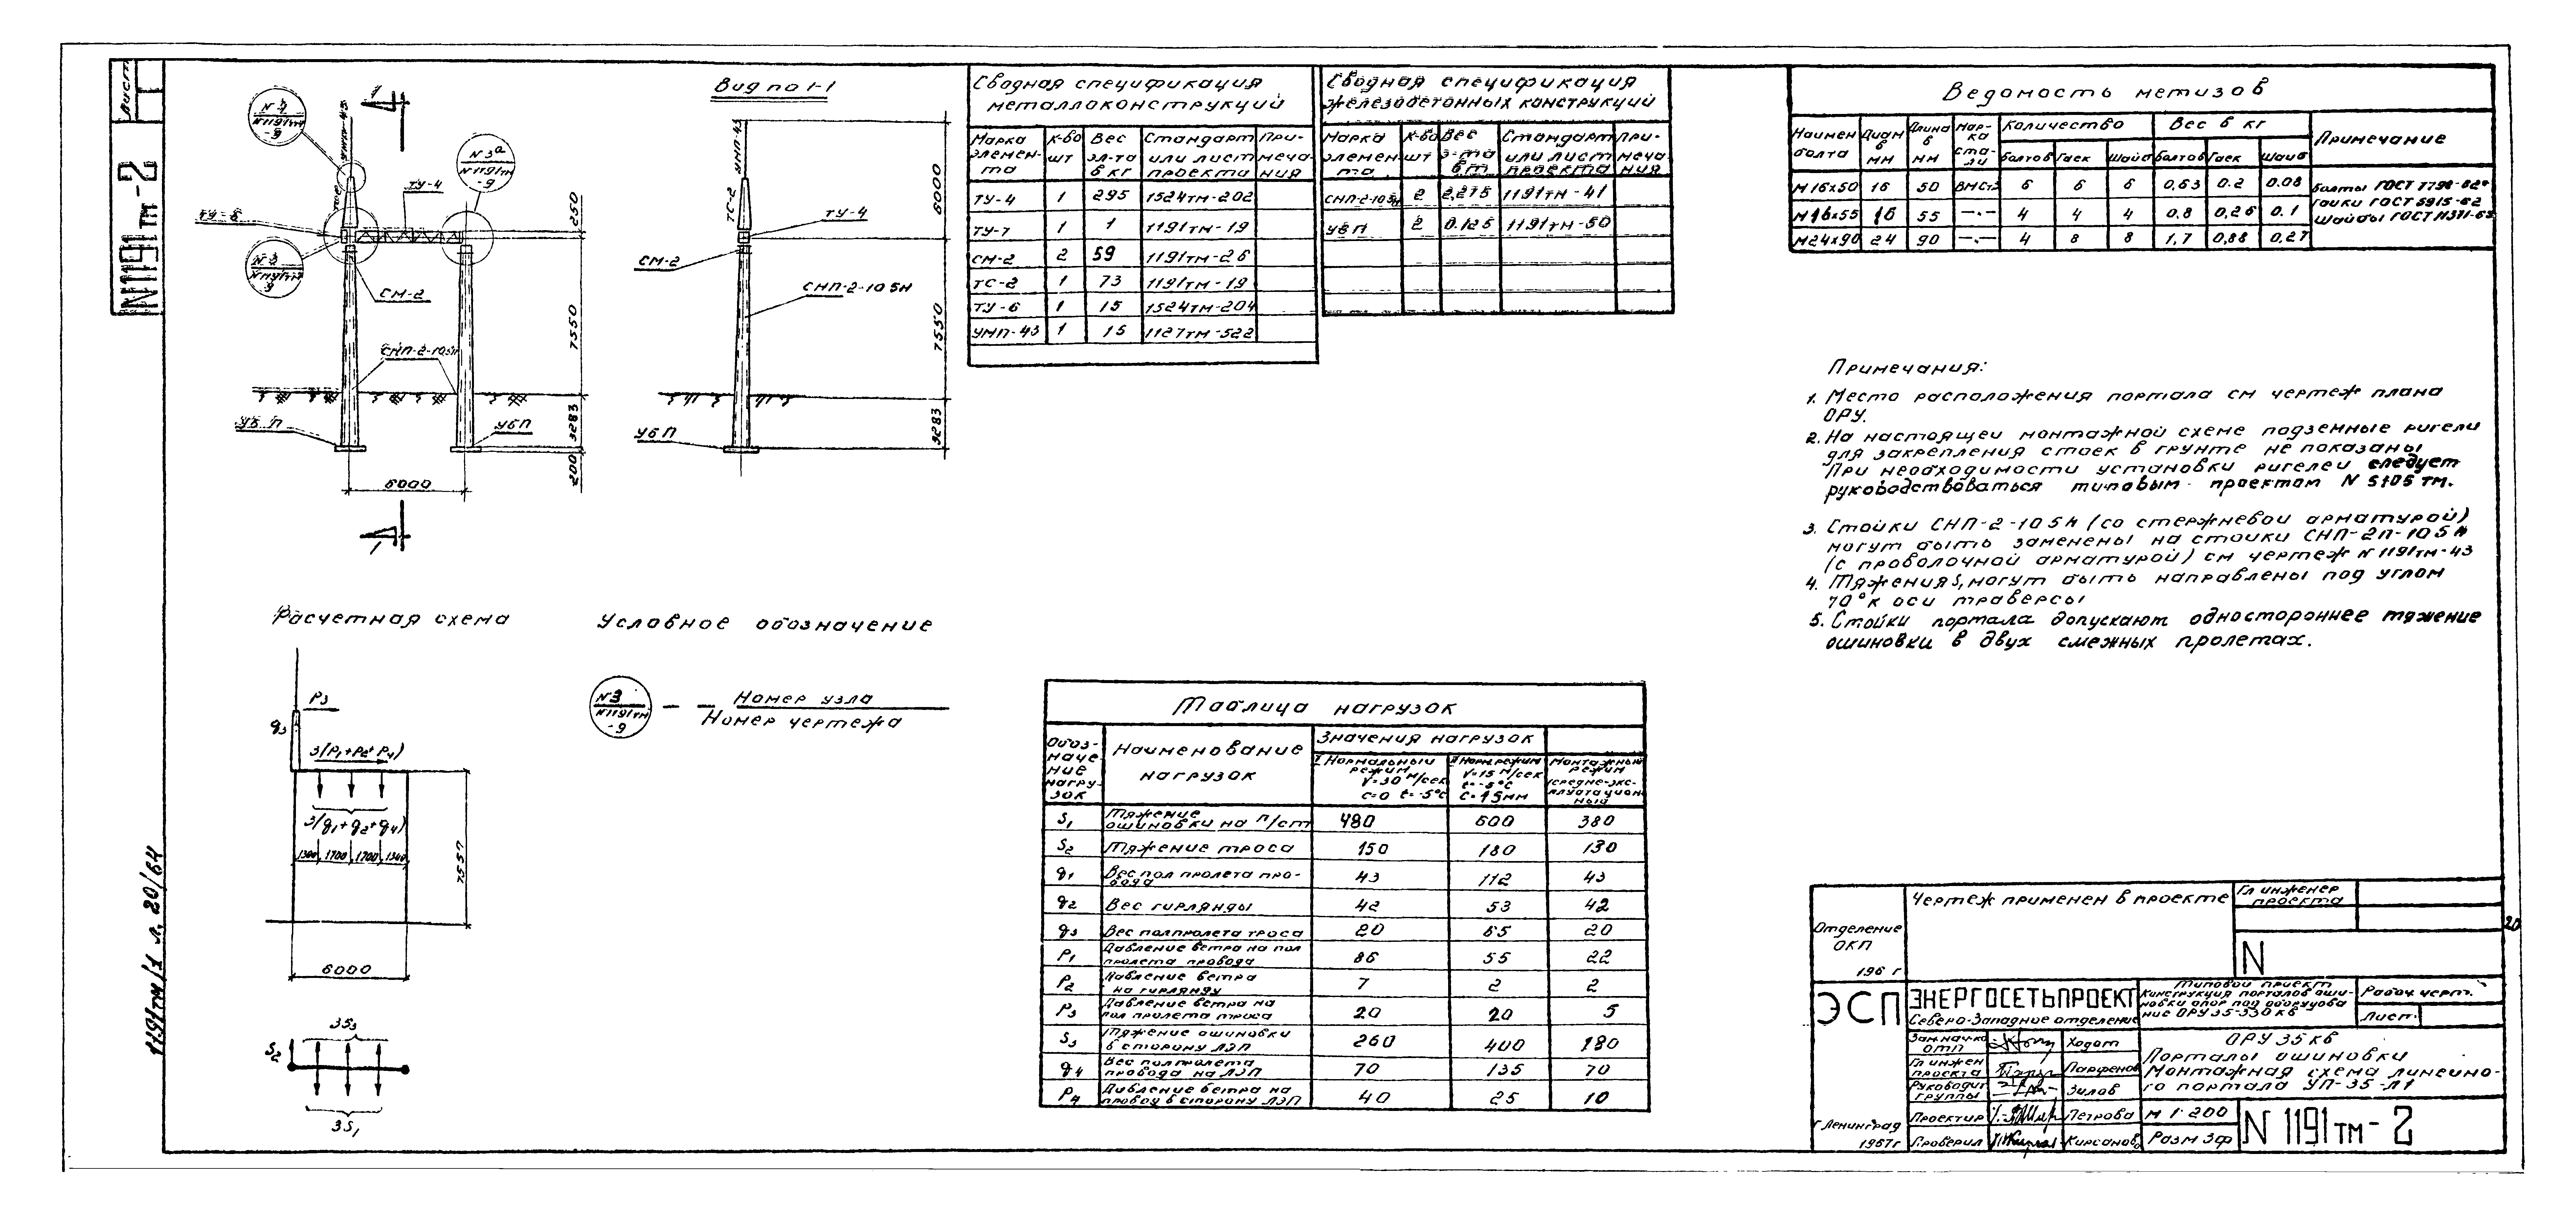 Лист
N1191тм-2
1191тм/1 л. 20/64
N 2
N1191тм
-9
УМП-43
1
N 3а
N1191тм
-9
ТУ-4
ТУ-6
N 3
N1191тм
9
СМ-2
СНП-2-105Н
УБП
УБП
6000
1
250
7550
3283
200
Вид по 1-1
УМП-43
ТС-2
ТУ-4
СМ-2
СНП-2-105Н
УБП
6000
7550
3283
Сводная спецификация
металлоконструкций
Марка элемента | К-во шт | Вес эл-та в кг | Стандарт или лист проекта | Примечания
ТУ-4 | 1 | 295 | 1524тм-202
ТУ-7 | 1 | 1 | 1191тм-19
СМ-2 | 2 | 59 | 1191тм-26
ТС-2 | 1 | 73 | 1191тм-19
ТУ-6 | 1 | 15 | 1524тм-204
УМП-43 | 1 | 15 | 1127тм-522
Сводная спецификация
железобетонных конструкций
Марка элемента | К-во шт | Вес э-та в т | Стандарт или лист проекта | Примечания
СНП-2-105Н | 2 | 2,275 | 1191тм-41
УБП | 2 | 0.125 | 1191тм-50
Ведомость метизов
Наимен болта | Диам в мм | Длина в мм | Марка стали | Количество | Вес в кг | Примечание
Болтов | Гаек | Шайб | Болтов | Гаек | Шайб
М16х50 | 16 | 50 | ВМСт3 | 6 | 6 | 6 | 0,63 | 0.2 | 0.08
М16х55 | 16 | 55 | —·— | 4 | 4 | 4 | 0,8 | 0,26 | 0.1
М24х90 | 24 | 90 | —·— | 4 | 8 | 8 | 1,7 | 0,88 | 0.27
Болты ГОСТ 7798-62*
Гайки ГОСТ 5915-62
Шайбы ГОСТ 11371-65
Примечания:
1. Место расположения портала см чертеж плана
ОРУ.
2. На настоящей монтажной схеме подземные ригели
для закрепления стоек в грунте не показаны
При необходимости установки ригелей следует
руководствоваться типовым проектом N 5105 тм.
3. Стойки СНП-2-105Н (со стержневой арматурой)
могут быть заменены на стойки СНП-2П-105Н
(с проволочной арматурой) см чертеж N 1191тм-43
4. Тяжения S, могут быть направлены под углом
70° к оси траверсы
5. Стойки портала допускают одностороннее тяжение
ошиновки в двух смежных пролетах.
Расчетная схема
P3
q3
3(P1+P2+P4)
3(q1+q2+q4)
1300 1700 1700 1300
7557
6000
3S3
S2
3S1
Условное обозначение
N3
N1191тм
-9
— — Номер узла
Номер чертежа
Таблица нагрузок
Обозначение нагрузок | Наименование нагрузок | Значения нагрузок
I Нормальный режим V=30 м/сек C=0 t=-5°C | II Норм.режим V=15 м/сек t=-5°C C=15мм | Монтажный режим (средне-эксплуатационный
S1 | Тяжение ошиновки на п/ст | 480 | 600 | 380
S2 | Тяжение троса | 150 | 180 | 130
q1 | Вес пол пролета провода | 43 | 112 | 43
q2 | Вес гирлянды | 42 | 53 | 42
q3 | Вес полпролета троса | 20 | 65 | 20
P1 | Давление ветра на пол пролета провода | 86 | 55 | 22
P2 | Давление ветра на гирлянду | 7 | 2 | 2
P3 | Давление ветра на пол пролета троса | 20 | 20 | 5
S3 | Тяжение ошиновки в сторону ЛЭП | 260 | 400 | 180
q4 | Вес полпролета провода на ЛЭП | 70 | 135 | 70
P4 | Давление ветра на провод в сторону ЛЭП | 40 | 25 | 10
Отделение
ОКП
196 г
Чертеж применен в проекте
Гл инженер
проекта
N
20
ЭСП
ЭНЕРГОСЕТЬПРОЕКТ
Северо-Западное отделение
Типовой проект
Конструкция порталов оши-
новки опор под оборудова
ние ОРУ 35-330 кв
Рабоч. черт.
Лист.
Зам.нач-ка ОТП Ходот
Гл инжен проекта Парфенов
Руководит группы Зилов
Проектир Петрова
Проверил Кирсанова
ОРУ 35 кв
Порталы ошиновки
Монтажная схема линейно-
го портала УП-35-Л1
г Ленинград
1967г
М 1:200
Разм 3ф
N 1191тм-2